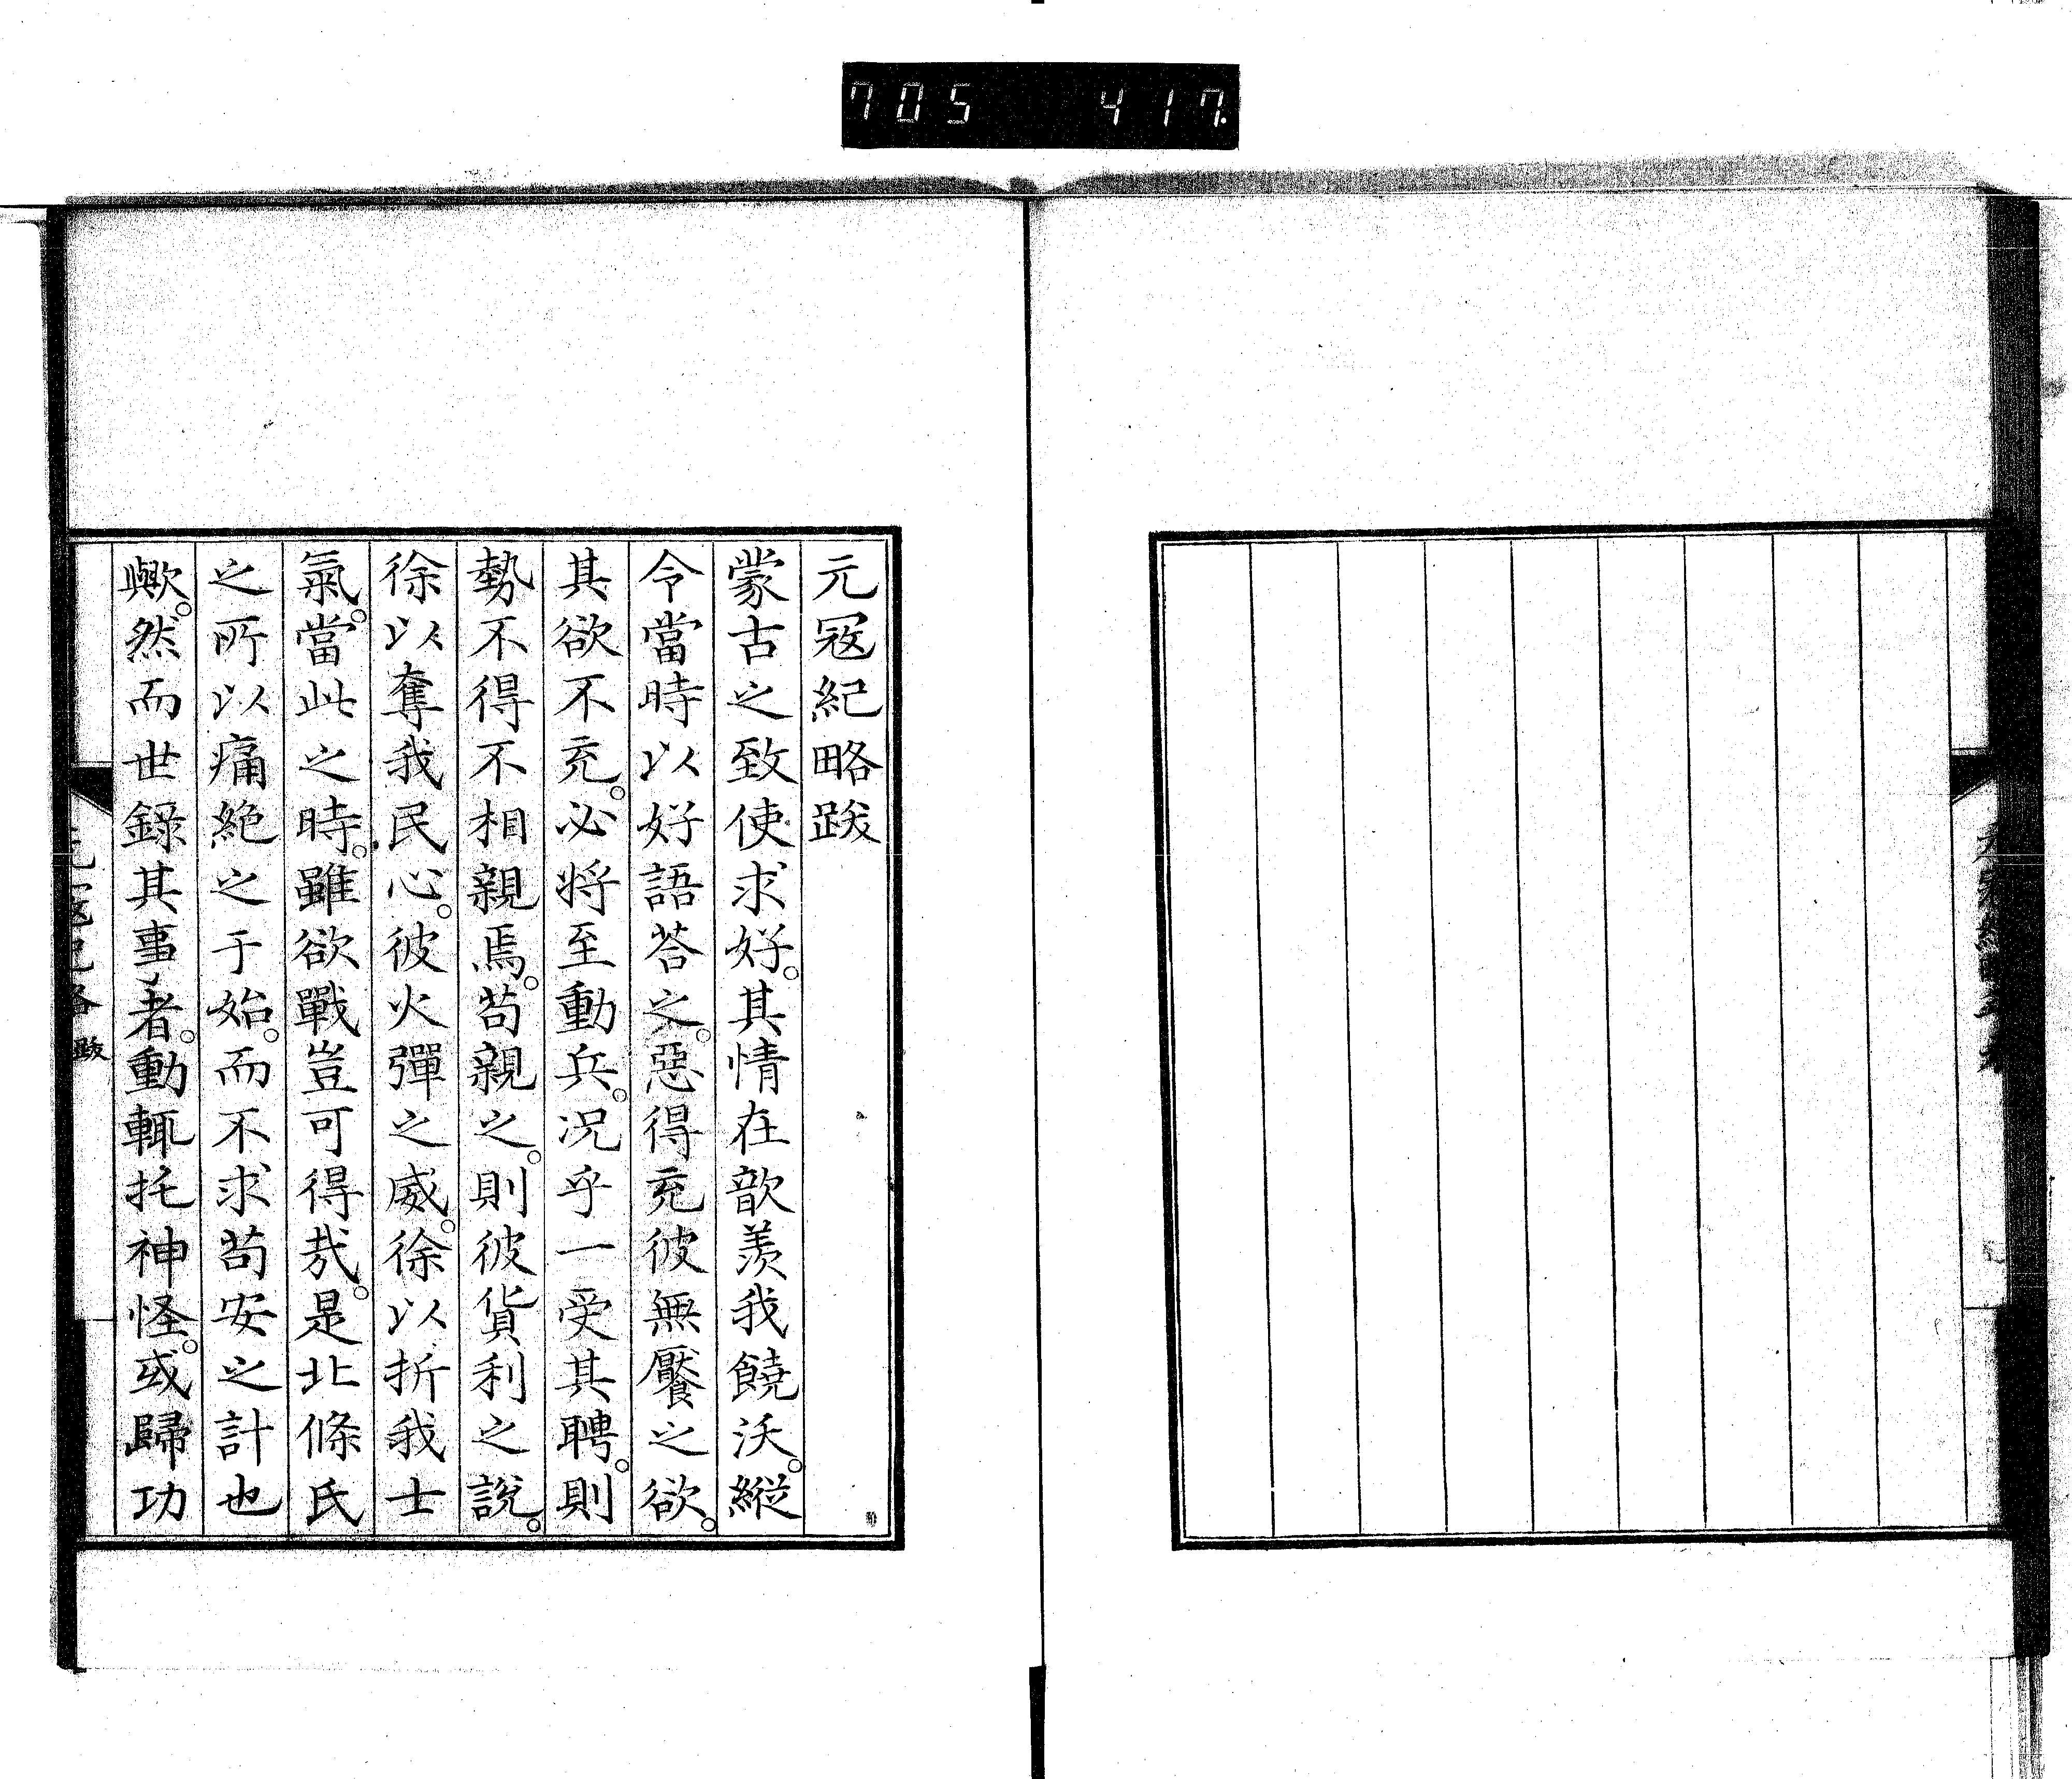 705 417.
元冦紀略跋
蒙古之致使求好。其情在歆羨我饒沃。縦
令當時以好語荅之。惡得充彼無饜之欲。
其欲不充。必将至動兵。况乎一受其聘。則
勢不得不相親焉。苟親之。則彼貨利之說。
徐以奪我民心。彼火彈之威。徐以折我士
氣。當此之時。雖欲戰豈可得哉。是北條氏
之所以痛絶之于始。而不求苟安之計也
歟。然而世錄其事者。動輒托神怪。或歸功
元冦紀略 跋